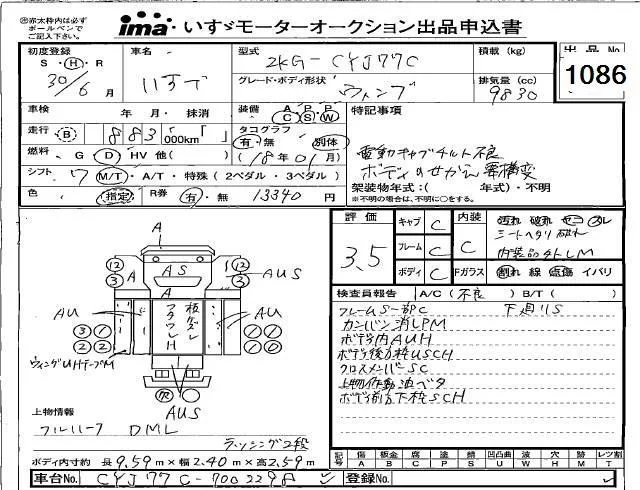 ㊟赤太枠内は必ず
ボールペンで
ご記入下さい。
ima いすゞモーターオークション出品申込書
初度登録 車名 型式 積載(kg) 出品No
S・H・R 2KG-CYJ77C
30/6月 いすゞ グレード・ボディ形状 ウィング 排気量(cc) 9830 1086
車検 年 月・抹消 装備 A/C P/S P/W 特記事項
走行 B 883 000km「 」 タコグラフ
有・無 別体
燃料 G D HV 他( ) (18年01月) 電動キャブチルト不良
シフト 7 M/T・A/T・特殊(2ペダル・3ペダル) ボディのせかえ 要構変
架装物年式:( 年式)・不明
色 (指定) R券 有・無 13340円 ※不明の場合は、不明に○をする。
評価 キャブ C 内装 汚れ 破れ ヤニ スレ
3.5 フレーム C C シートヘタリ 破れ
内装品外しM
ボディ C Fガラス 割れ 線 点傷 イバリ
検査員報告 A/C(不良) B/T( )
フレームS一部C 下廻りS
カンバン消しPM
ボデ内AUH
ボデ後方枠USCH
クロスメンバーSC
上物作動油ベタ
ボデ前方下枠SCH
A
12 AS 12
3 3 AUS
A
AU AU
3 1 1 1
2 2 1 1
ウィングUHテープM
R
AUS
上物情報
フルハーフ DML
ラッシング2段
ボディ内寸約 長9.59m×幅2.40m×高2.59m
記号 傷 板金 腐 塗 錆 凹凸曲 波 穴 跡 レツ割
A B C P S U W H M T
車台No. CYJ77C-7002298 登録No.